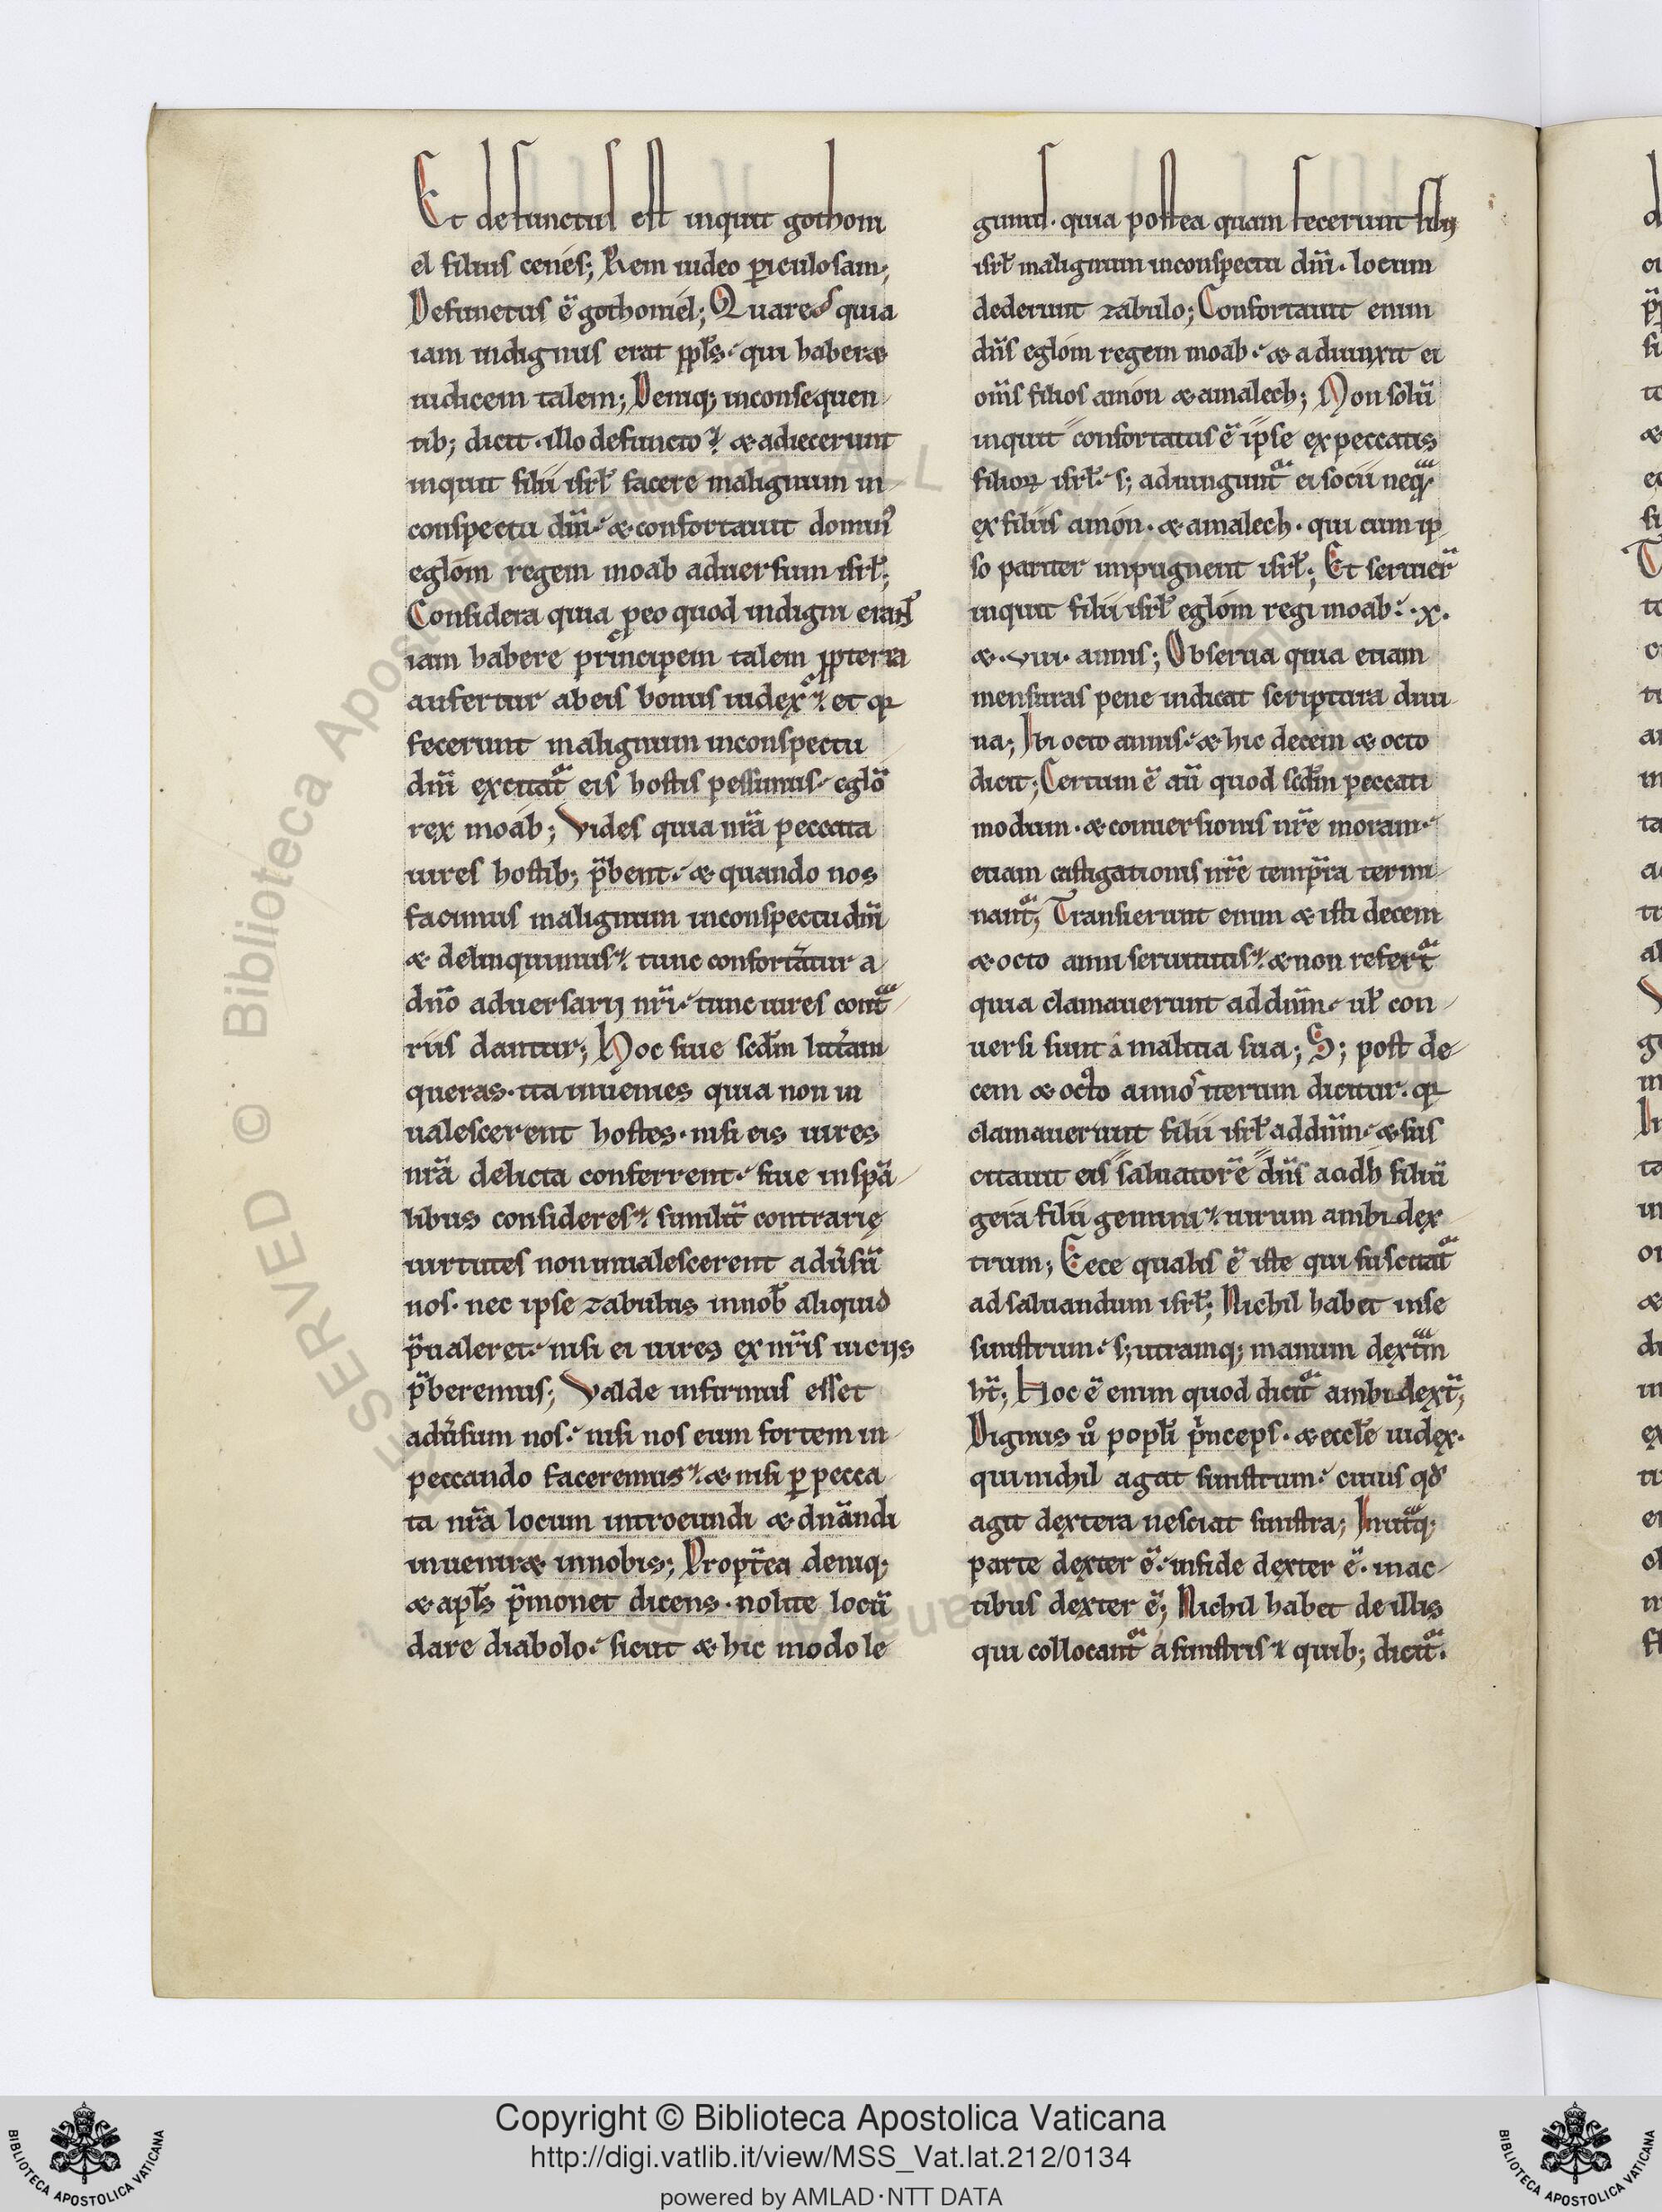 Et defunctus est inquit gothoni
el filius cenés; Rem uideo ꝑiculosam;
Defunctus ē gothoniél; Quare? quia
iam indignus erat ppl̄s. qui haberæ
iudicem talem; Deniq; inconsequen
tib; dicit. illo defuncto. & adiecerunt
inquit filii isrl̄ facere malignum in
conspectu dn̄i. & confortauit domin᾽
eglóm regem moab aduersum isrl̄;
Considera quia ꝓeo quod indigni erant
iam habere principem talem ꝓpterea
aufertur abeis bonus iudex. et qꝛ
fecerunt malignum inconspectu
dn̄i excitat᷑ eis hostis pessimus. eglō
rex moáb; Vides quia nr̄a peccata
uires hostib; p̄bent. & quando nos
facimus malignum inconspectu dn̄i
& delinquimus. tunc confortantur a
dn̄o aduersarij nr̄i. tunc uires cont̄
riis dantur; Hoc siue scd̄m litt̄am
queras. ita inuenies quia non in
ualescerent hostes. nisi eis uires
nr̄a delicta conferrent. siue insp̄a
libus consideres. similit̄ contrarię
uirtutes non inualescerent adūsū
nos. nec ipse zabulus innob̄ aliquid
p̄ualeret. nisi ei uires ex nr̄is uicijs
p̄beremus; Valde infirmus esset
adūsum nos. nisi nos eum fortem in
peccando faceremus. & nisi ꝑ pecca
ta nr̄a locum introeundi & dn̄andi
inueniræ innobis; Propt̄ea deniq;
& apl̄s p̄monet dicens. nolite locū
dare diabolo. sicut & hic modo le
gimus. quia postea quam fecerunt filij
isrl̄ malignum inconspectu dn̄i. locum
dederunt zabulo; Confortauit enim
dn̄s eglóm regem moab. & adiunxit ei
om̄s filios amón & amalech; Non solū
inquit confortatus ē ipse ex peccatis
filioꝝ isrl̄. s; adiungunt᷑ ei socii neq̄
ex filiis amón. & amalech. qui cum ip
so pariter inpugnent isrl̄; Et seruier̄
inquit filii isrl̄ eglóm regi moab. x.
& .viii. annis; Obserua quia etiam
mensuras pene indicat scriptura diui
na; Ibi octo annis. & hic decem & octo
dicit; Certum ē aū quod scd̄m peccati
modum. & conuersionis nr̄e moram.
etiam castigationis nr̄e temp̄ra termi
nant᷑; Transierunt enim & isti decem
& octo anni seruitutis. & non refert᷑
quia clamauerunt ad dn̄m. ul̄ con
uersi sunt á malitia sua; S; post de
cem & octo annos iterum dicitur. qꝛ
clamauerunt filii isrl̄ ad dn̄m. & sus
citauit eis saluatorē dn̄s aodh filiū
gerá filii gemini. uirum ambidex
trum; Ecce qualis ē iste qui suscitat᷑
ad saluandum isrl̄; Nichil habet inse
sinistrum. s; utramq; manum dext̄m
ht̄; Hoc ē enim quod dicit᷑ ambidext̄;
Dignus ů popl̄i p̄nceps. & eccl̄e iudex.
qui nichil agat sinistrum. cuius qd̄
agit dextera nesciat sinistra; Inut̄q;
parte dexter ē. infide dexter ē. in ac
tibus dexter ē; Nichil habet de illis
qui collocant᷑ á sinistris quib; dicit᷑.
Copyright © Biblioteca Apostolica Vaticana
http://digi.vatlib.it/view/MSS_Vat.lat.212/0134
powered by AMLAD·NTT DATA
BIBLIOTECA APOSTOLICA VATICANA
BIBLIOTECA APOSTOLICA VATICANA